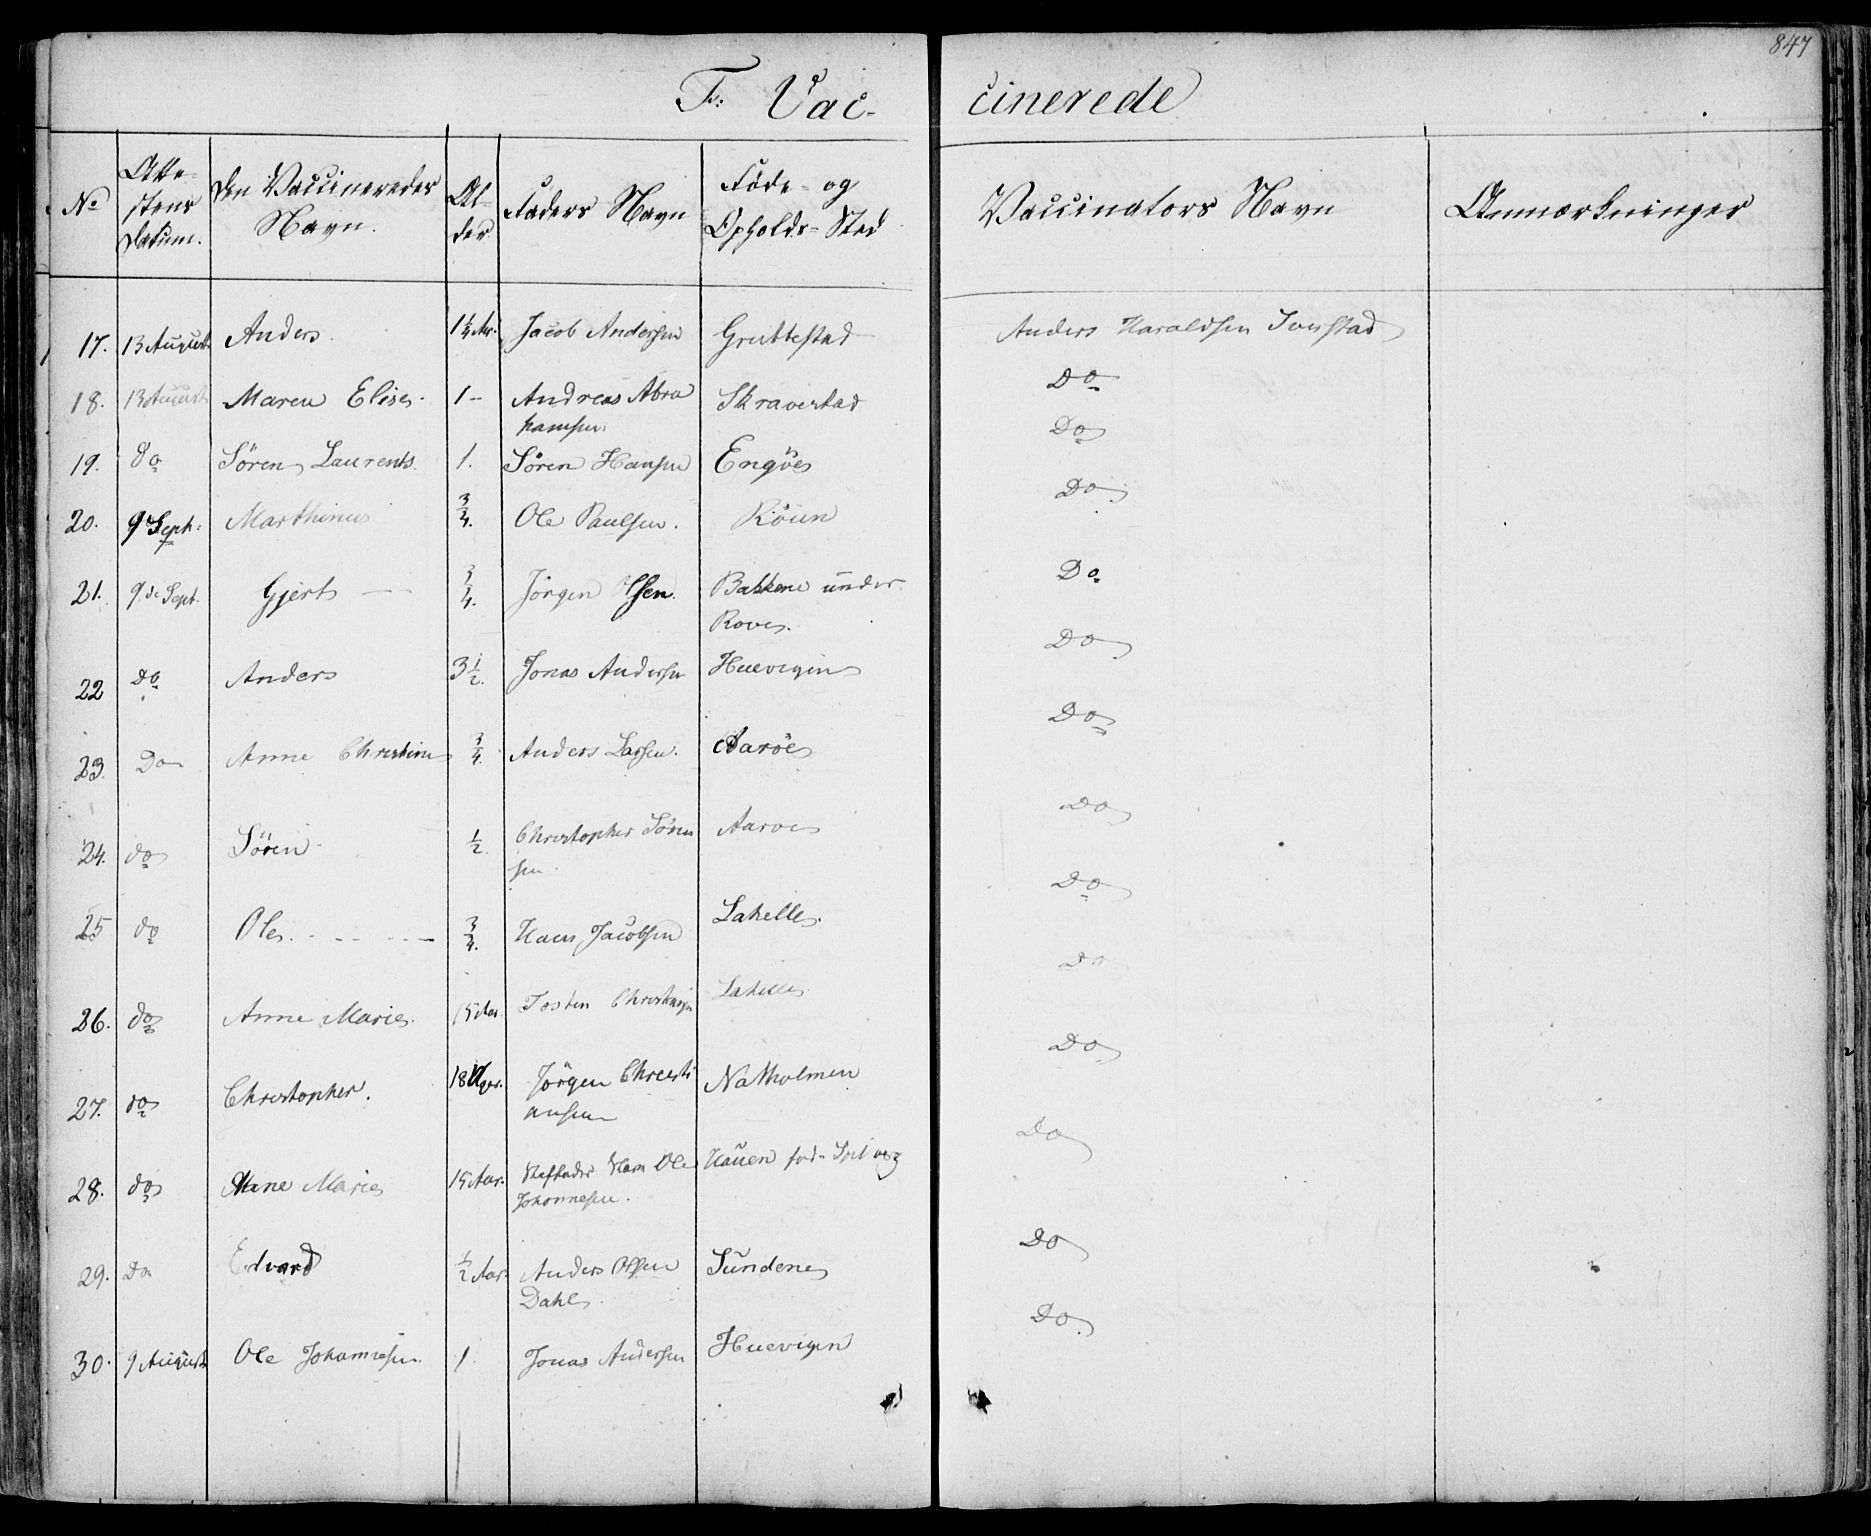 847
F: Vaccinerede
No | Attestens Datum. | Den Vaccineredes Navn. | Alder | Faders Navn | Føde- og Opholds-Sted | Vaccinators Navn | Anmærkninger
17. | 13 August | Anders. | 1¼ Aar. | Jacob Andersen | Gruttestad | Anders Haraldsen Ivestad
18. | 13 August | Maren Elise. | 1 - | Andreas Abrahamsen. | Skravestad | Do
19. | do | Søren Laurents. | 1. | Søren Hansen | Engöe | Do
20. | 9 Sept: | Marthinus | ¾. | Ole Paulsen. | Röün | Do
21. | 9de Sept. | Gjert | ¾. | Jörgen Olsen. | Bakkene under Rove. | Do.
22 | do | Anders | 3½. | Jonas Andersen | Huevigen | Do
23. | Do | Anne Christine | ¾. | Anders Larsen. | Aaröe | Do
24. | do | Sören | ½. | Christopher Sörensen | Aaroe | Do
25 | do | Ole. | ¾. | Hans Jacobsen | Lahelle. | Do
26. | do | Anne Marie. | 15 Aar. | Tosten Christensen | Lahelle | Do
27. | do | Christopher. | 18 Uger. | Jörgen Christiansen | Natholmen | Do
28. | do | Anne Marie | 15 Aar. | Steffader Ole Johannesen. | Hauen | Do
29. | Do | Edvard | ½ Aar. | Anders Olsen Dahl. | Sundene | Do
30. | 9 August | Ole Johannesen. | 1. | Jonas Andersen | Huevigen | Do.